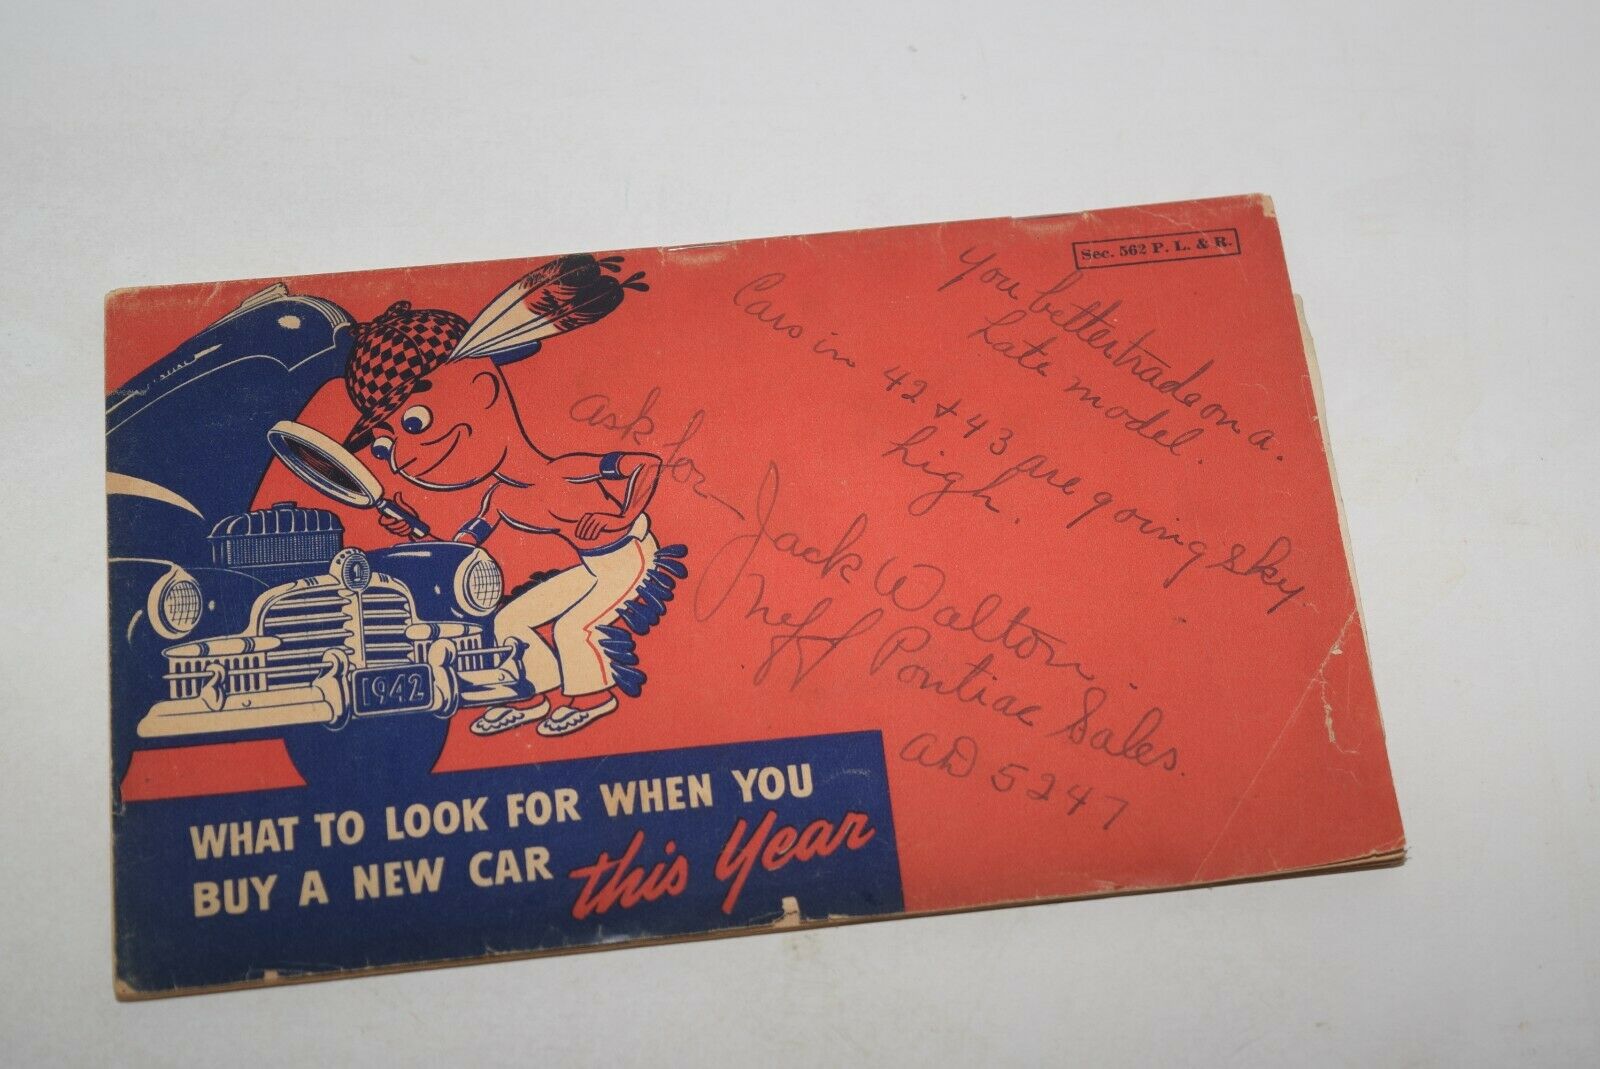 Sec. 562 P. L. & R.
You better trade on a
late model.
Cars in 42 + 43 are going sky
high.
ask for -
Jack Walton.
Neff Pontiac Sales.
AD 5247
1
1942
WHAT TO LOOK FOR WHEN YOU
BUY A NEW CAR this Year